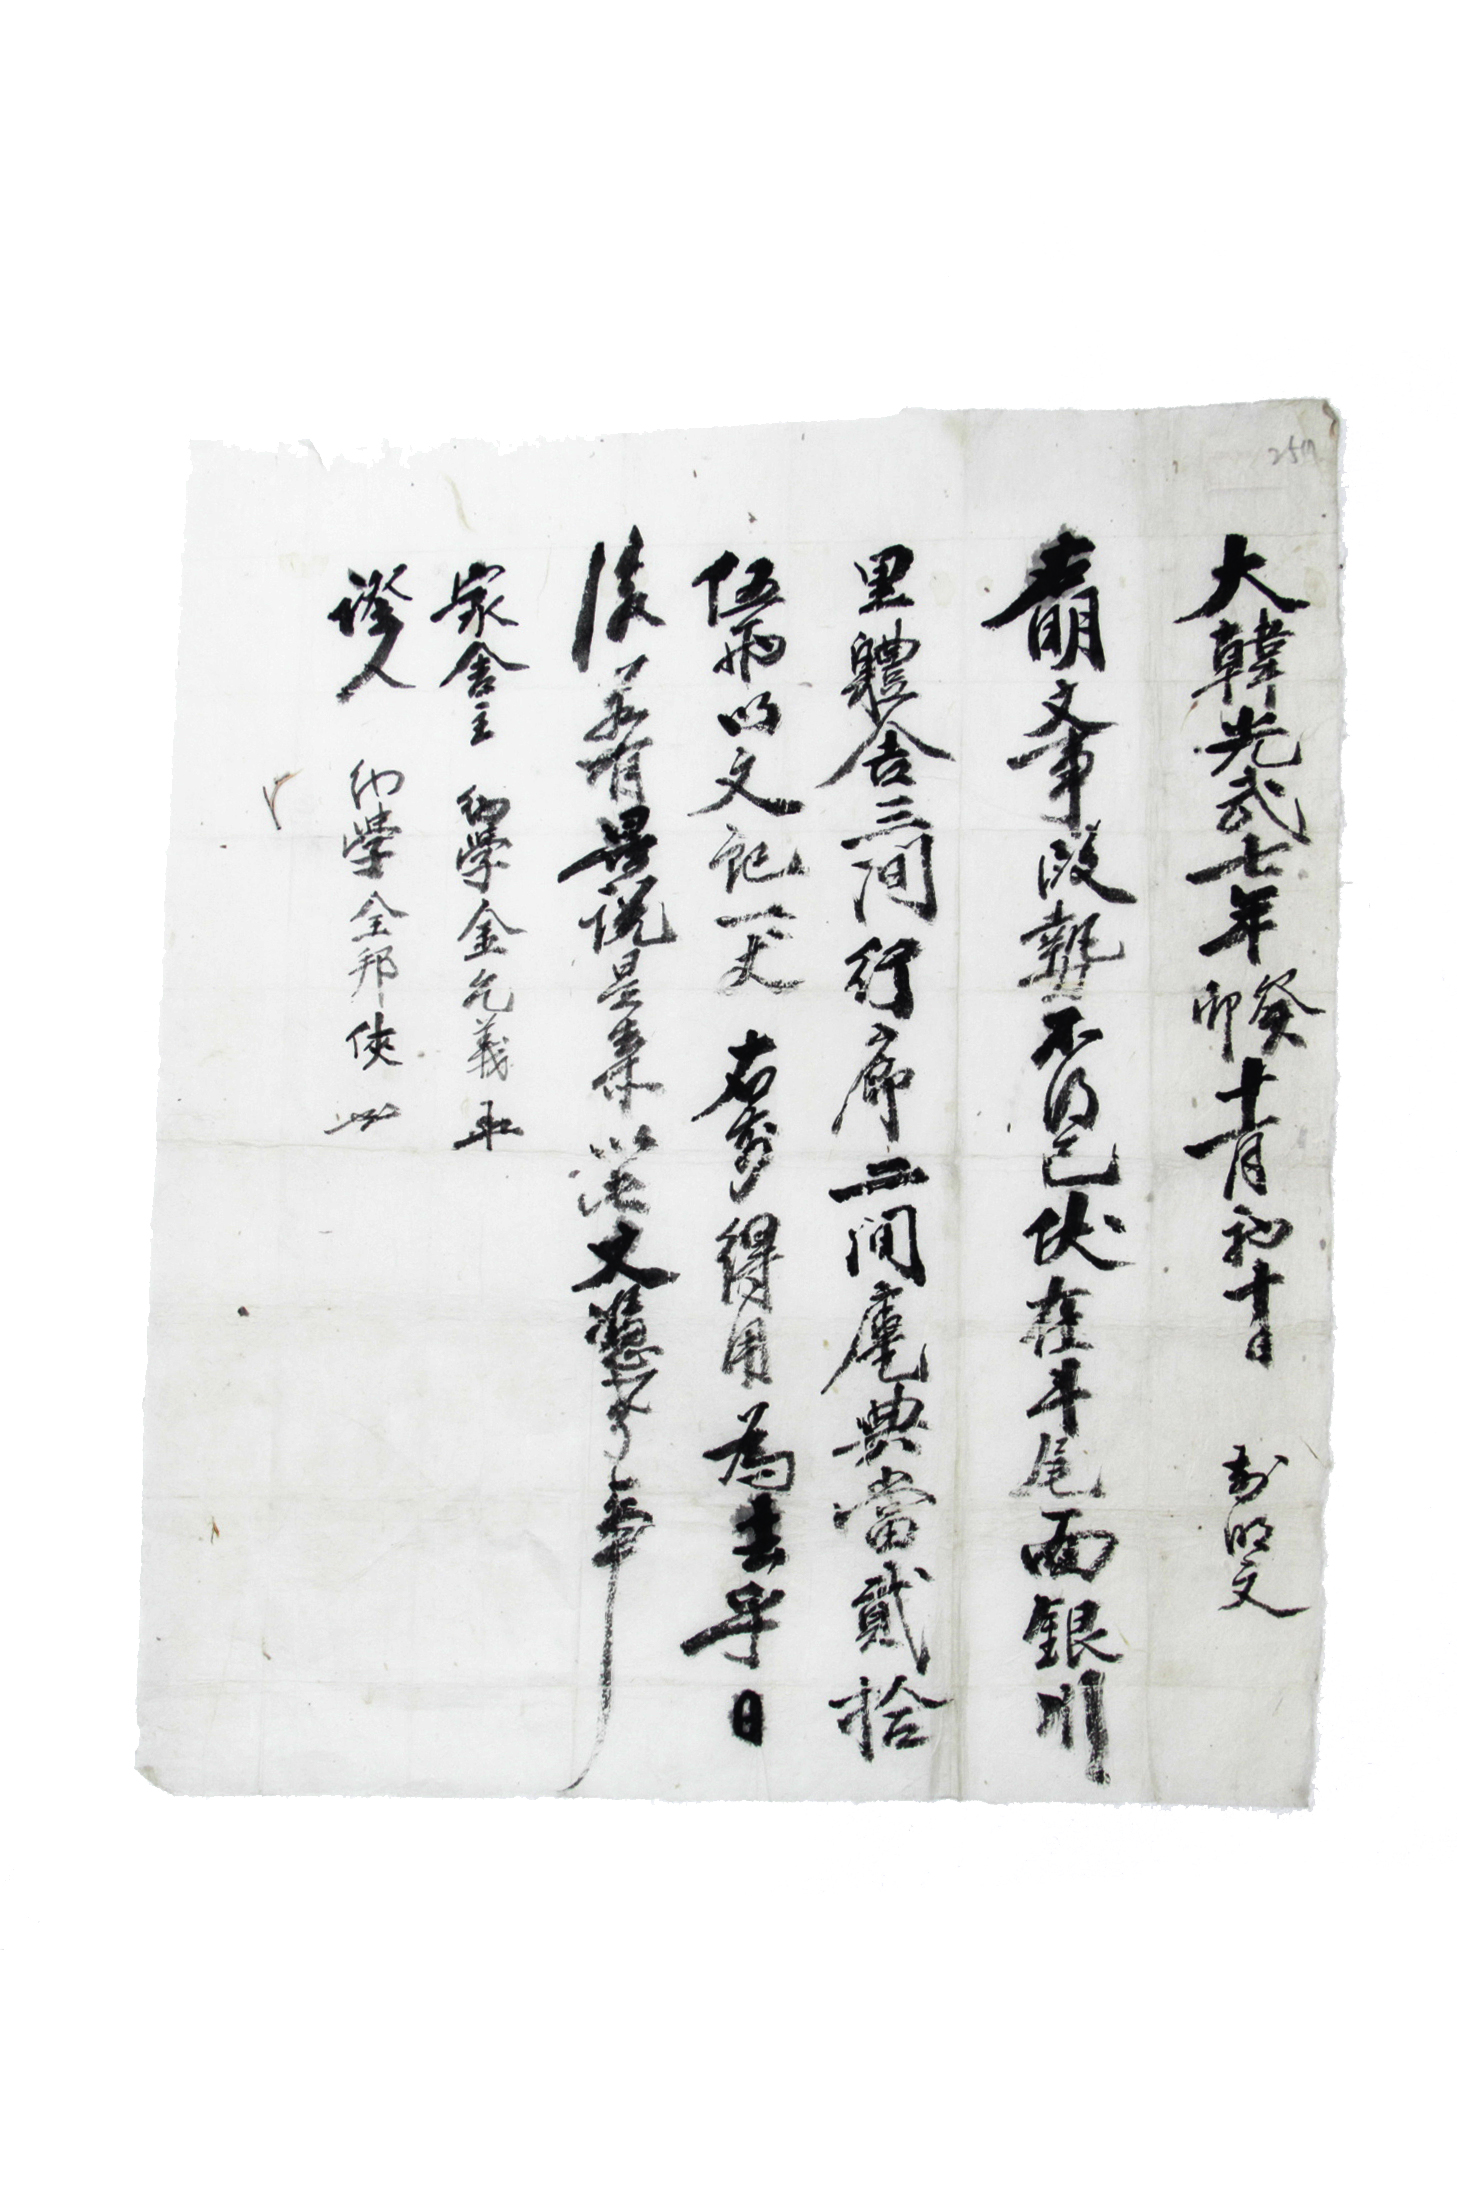 大韓光武七年癸卯十一月初十日 前明文
右明文事段勢不得已伏在斗尾面銀川
里體舍三間行廊二間庵典當貳拾
伍兩以文記一丈右前得用爲去乎日
後若有是說是素此文憑考事
家舍主 幼學金允義
證人 幼學全邦俠